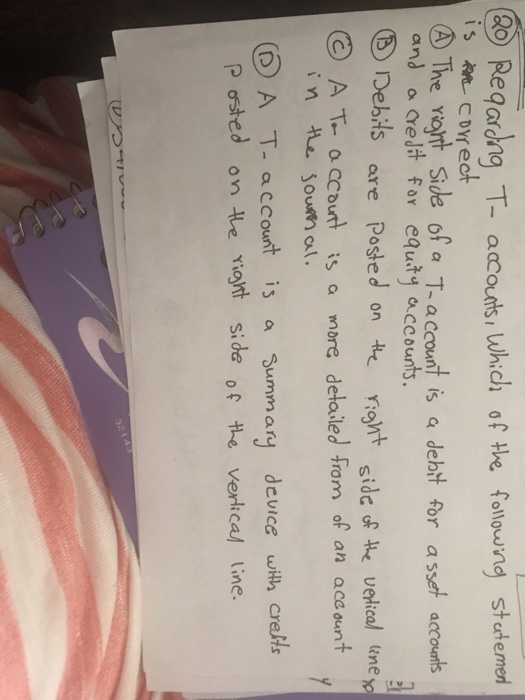 (20) Regarding T- accounts, Which of the following statement
is correct
(A) The right side of a T-account is a debit for asset accounts
and a credit for equity accounts.
(B) Debits are posted on the right side of the vertical line
(C) A T- account is a more detailed from of an account
in the journal.
(D) A T- account is a summary device with credits
posted on the right side of the vertical line.